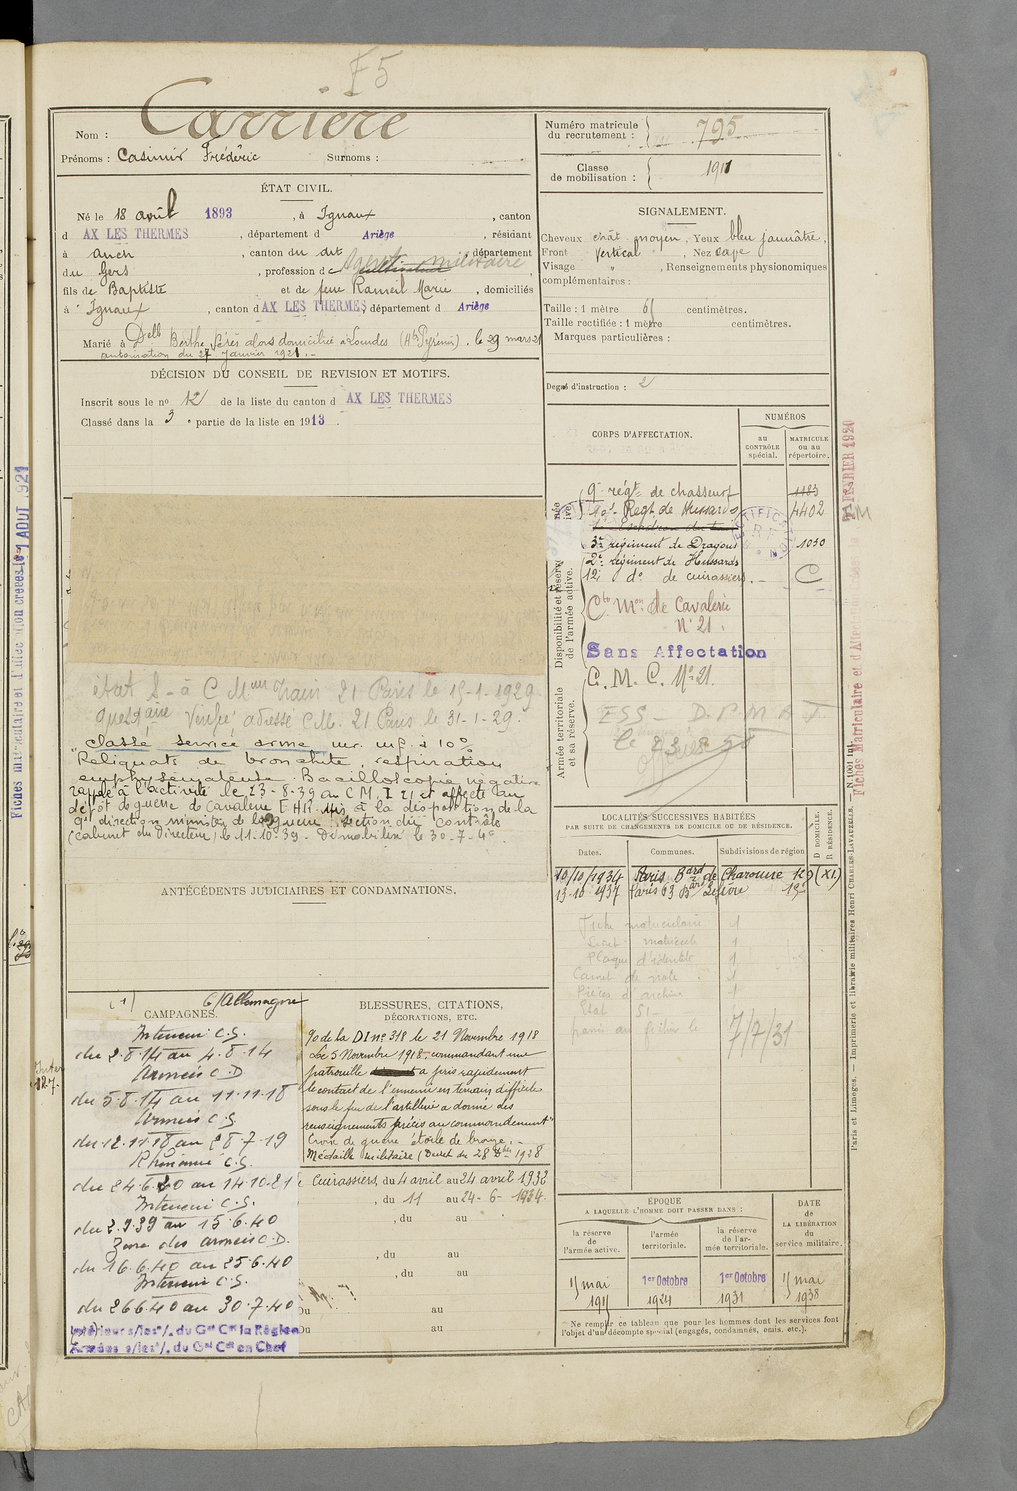 F5
Nom : Carrière
Prénoms : Casimir Frédéric Surnoms :
Numéro matricule du recrutement : 795
Classe de mobilisation : 1911
ÉTAT CIVIL.
Né le 18 avril 1893, à Ignaux, canton
d AX LES THERMES, département d Ariège, résidant
à Auch, canton du dit, département
du Gers, profession de cultivateur militaire
fils de Baptiste et de feue Rameil Marie, domiciliés
à Ignaux, canton d AX LES THERMES, département d Ariège
Marié à Delle Berthe Pérès alors domiciliée à Lourdes (Htes Pyrénées), le 29 mars 21
autorisation du 27 Janvier 1921.-
DÉCISION DU CONSEIL DE REVISION ET MOTIFS.
Inscrit sous le no 12 de la liste du canton d AX LES THERMES
Classé dans la 3 e partie de la liste en 1913.
SIGNALEMENT.
Cheveux chât. moyen, Yeux bleu jaunâtre,
Front Vertical, Nez cave
Visage " , Renseignements physionomiques
complémentaires :
Taille : 1 mètre 61 centimètres.
Taille rectifiée : 1 mètre centimètres.
Marques particulières :
Degré d'instruction : 2
CORPS D'AFFECTATION.
NUMÉROS
au CONTRÔLE spécial.
MATRICULE ou au répertoire.
Disponibilité et réserve de l'armée active.
9e régt de chasseurs 1183
10e Régt de Hussards 4402
3e régiment de Dragons 1030
2e régiment de Hussards
12e do de cuirassiers.- C
Cie Mon de Cavalerie
No 21.
Sans Affectation
Armée territoriale et sa réserve.
C. M. C. No 21.
ESS – D.P.M.A.T.
le 23.8.50
état S – à C Mon Train 21 Paris le 15-1-1929
Questaire Vérifié adressé CM. 21 Paris le 31-1-29.
"Classé service armé inv. mp. à 10%
Reliquats de bronchite, respiration
emphysémateuse. Bacilloscopie négative
rappelé à l'activité le 23-8-39 au C M. I 21 et affecté au
dépôt de guerre de Cavalerie E.H.R. Mis à la disposition de la
9e direction ministère de la guerre section du contrôle
(cabinet du Directeur) le 11-10-39. Démobilisé le 30-7-40
ANTÉCÉDENTS JUDICIAIRES ET CONDAMNATIONS.
LOCALITÉS SUCCESSIVES HABITÉES
PAR SUITE DE CHANGEMENTS DE DOMICILE OU DE RÉSIDENCE.
Dates. Communes. Subdivisions de région
D DOMICILE.
R RÉSIDENCE.
10/10/1934 Paris Bard de Charonne 129 (XI)
13-10 1937 Paris 63 Bard Lefèvre 15e
Fiche matriculaire 1
Livret matricule 1
Plaque d'identité 1
Carnet de note 1
Pièces d'archive 1
Etat S1 –
7/7/31
(1) C/Allemagne
CAMPAGNES.
Intérieur C.S.
du 2.8.14 au 4.8.14
Armées C.D
du 5.8.14 au 11.11.18
Armées C.S.
du 12.11.18 au 28.7.19
Rhénanie C.S.
du 24.6.20 au 14.10.21
Intérieur C.S.
du 2.9.39 au 15.6.40
Zone des armées C.D.
du 16.6.40 au 25.6.40
Intérieur C.S.
du 26.6.40 au 30.7.40
Intérieur s/les o/. du Gal Ct la Région
Armées s/les o/. du Gal Ct en Chef
BLESSURES, CITATIONS,
DÉCORATIONS, ETC.
%o de la DI no 318 le 21 Novembre 1918
Le 5 Novembre 1918 - commandant une
patrouille a pris rapidement
le contact de l'ennemi en terrain difficile
sous le feu de l'artillerie a donné des
renseignements précis au commandement"
Croix de guerre étoile de bronze.-
Médaille Militaire (Décret du 28 Xbre 1928
Cuirassiers, du 4 avril au 24 avril 1932
, du 11 au 24-6-1934.
, du au
, du au
, du au
Du au
Du au
ÉPOQUE
A LAQUELLE L'HOMME DOIT PASSER DANS :
la réserve de l'armée active.
l'armée territoriale.
la réserve de l'armée territoriale.
DATE de LA LIBÉRATION du service militaire.
15 mai 1915
1er Octobre 1924
1er Octobre 1931
15 mai 1938
Ne remplir ce tableau que pour les hommes dont les services font
l'objet d'un décompte spécial (engagés, condamnés, omis, etc.).
Paris et Limoges. — Imprimerie et librairie militaires Henri CHARLES-LAVAUZELLE. — No 1001 int.